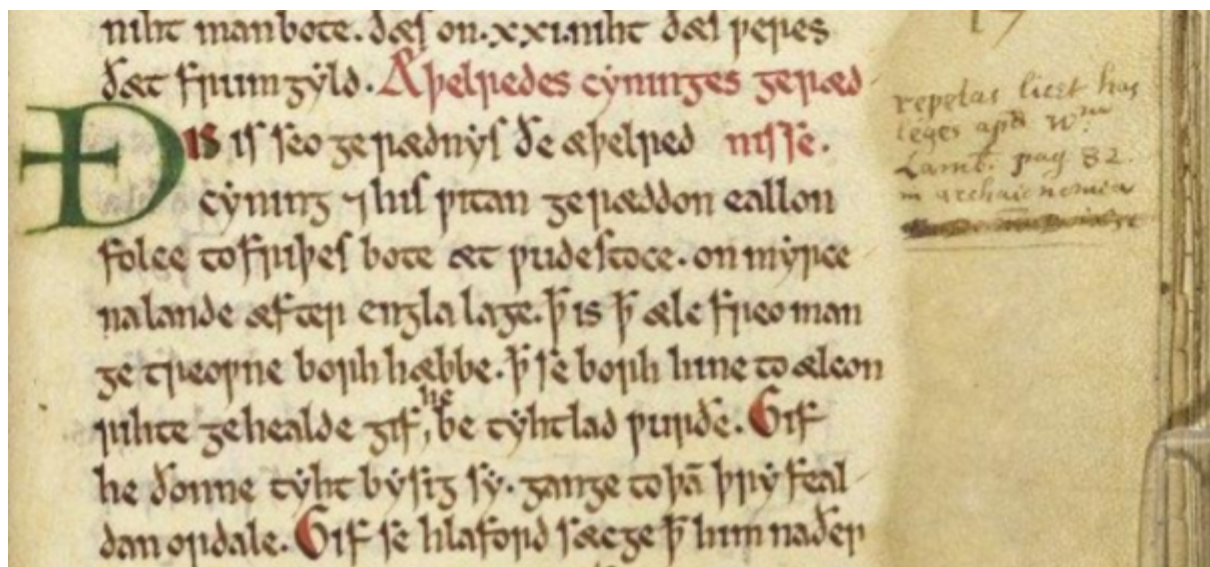 niht manbote. ðæs on .xxi. niht ðæs ƿeres
ðæt frumgẏld. Æþelredes cẏninges geræd
ÐIS is seo gerædnẏs ðe æþelred nisse.
cẏning ⁊ his ƿitan geræddon eallon
folce to friþes bote æt ƿudestoce. on mẏrce
nalande æfter engla lage. ꝥ is ꝥ ælc freo man
ge treoƿne borh hæbbe. ꝥ se borh hine to ælcon
rihte gehealde gif he be tẏhtlad ƿurðe. Gif
he ðonne tẏht bẏsig sẏ. gange to þā þrẏ feal
dan ordale. Gif se hlaford sæcge ꝥ him naðer
repetas licet has
leges apd Wm
Lamb. pag 82.
in archaionomia